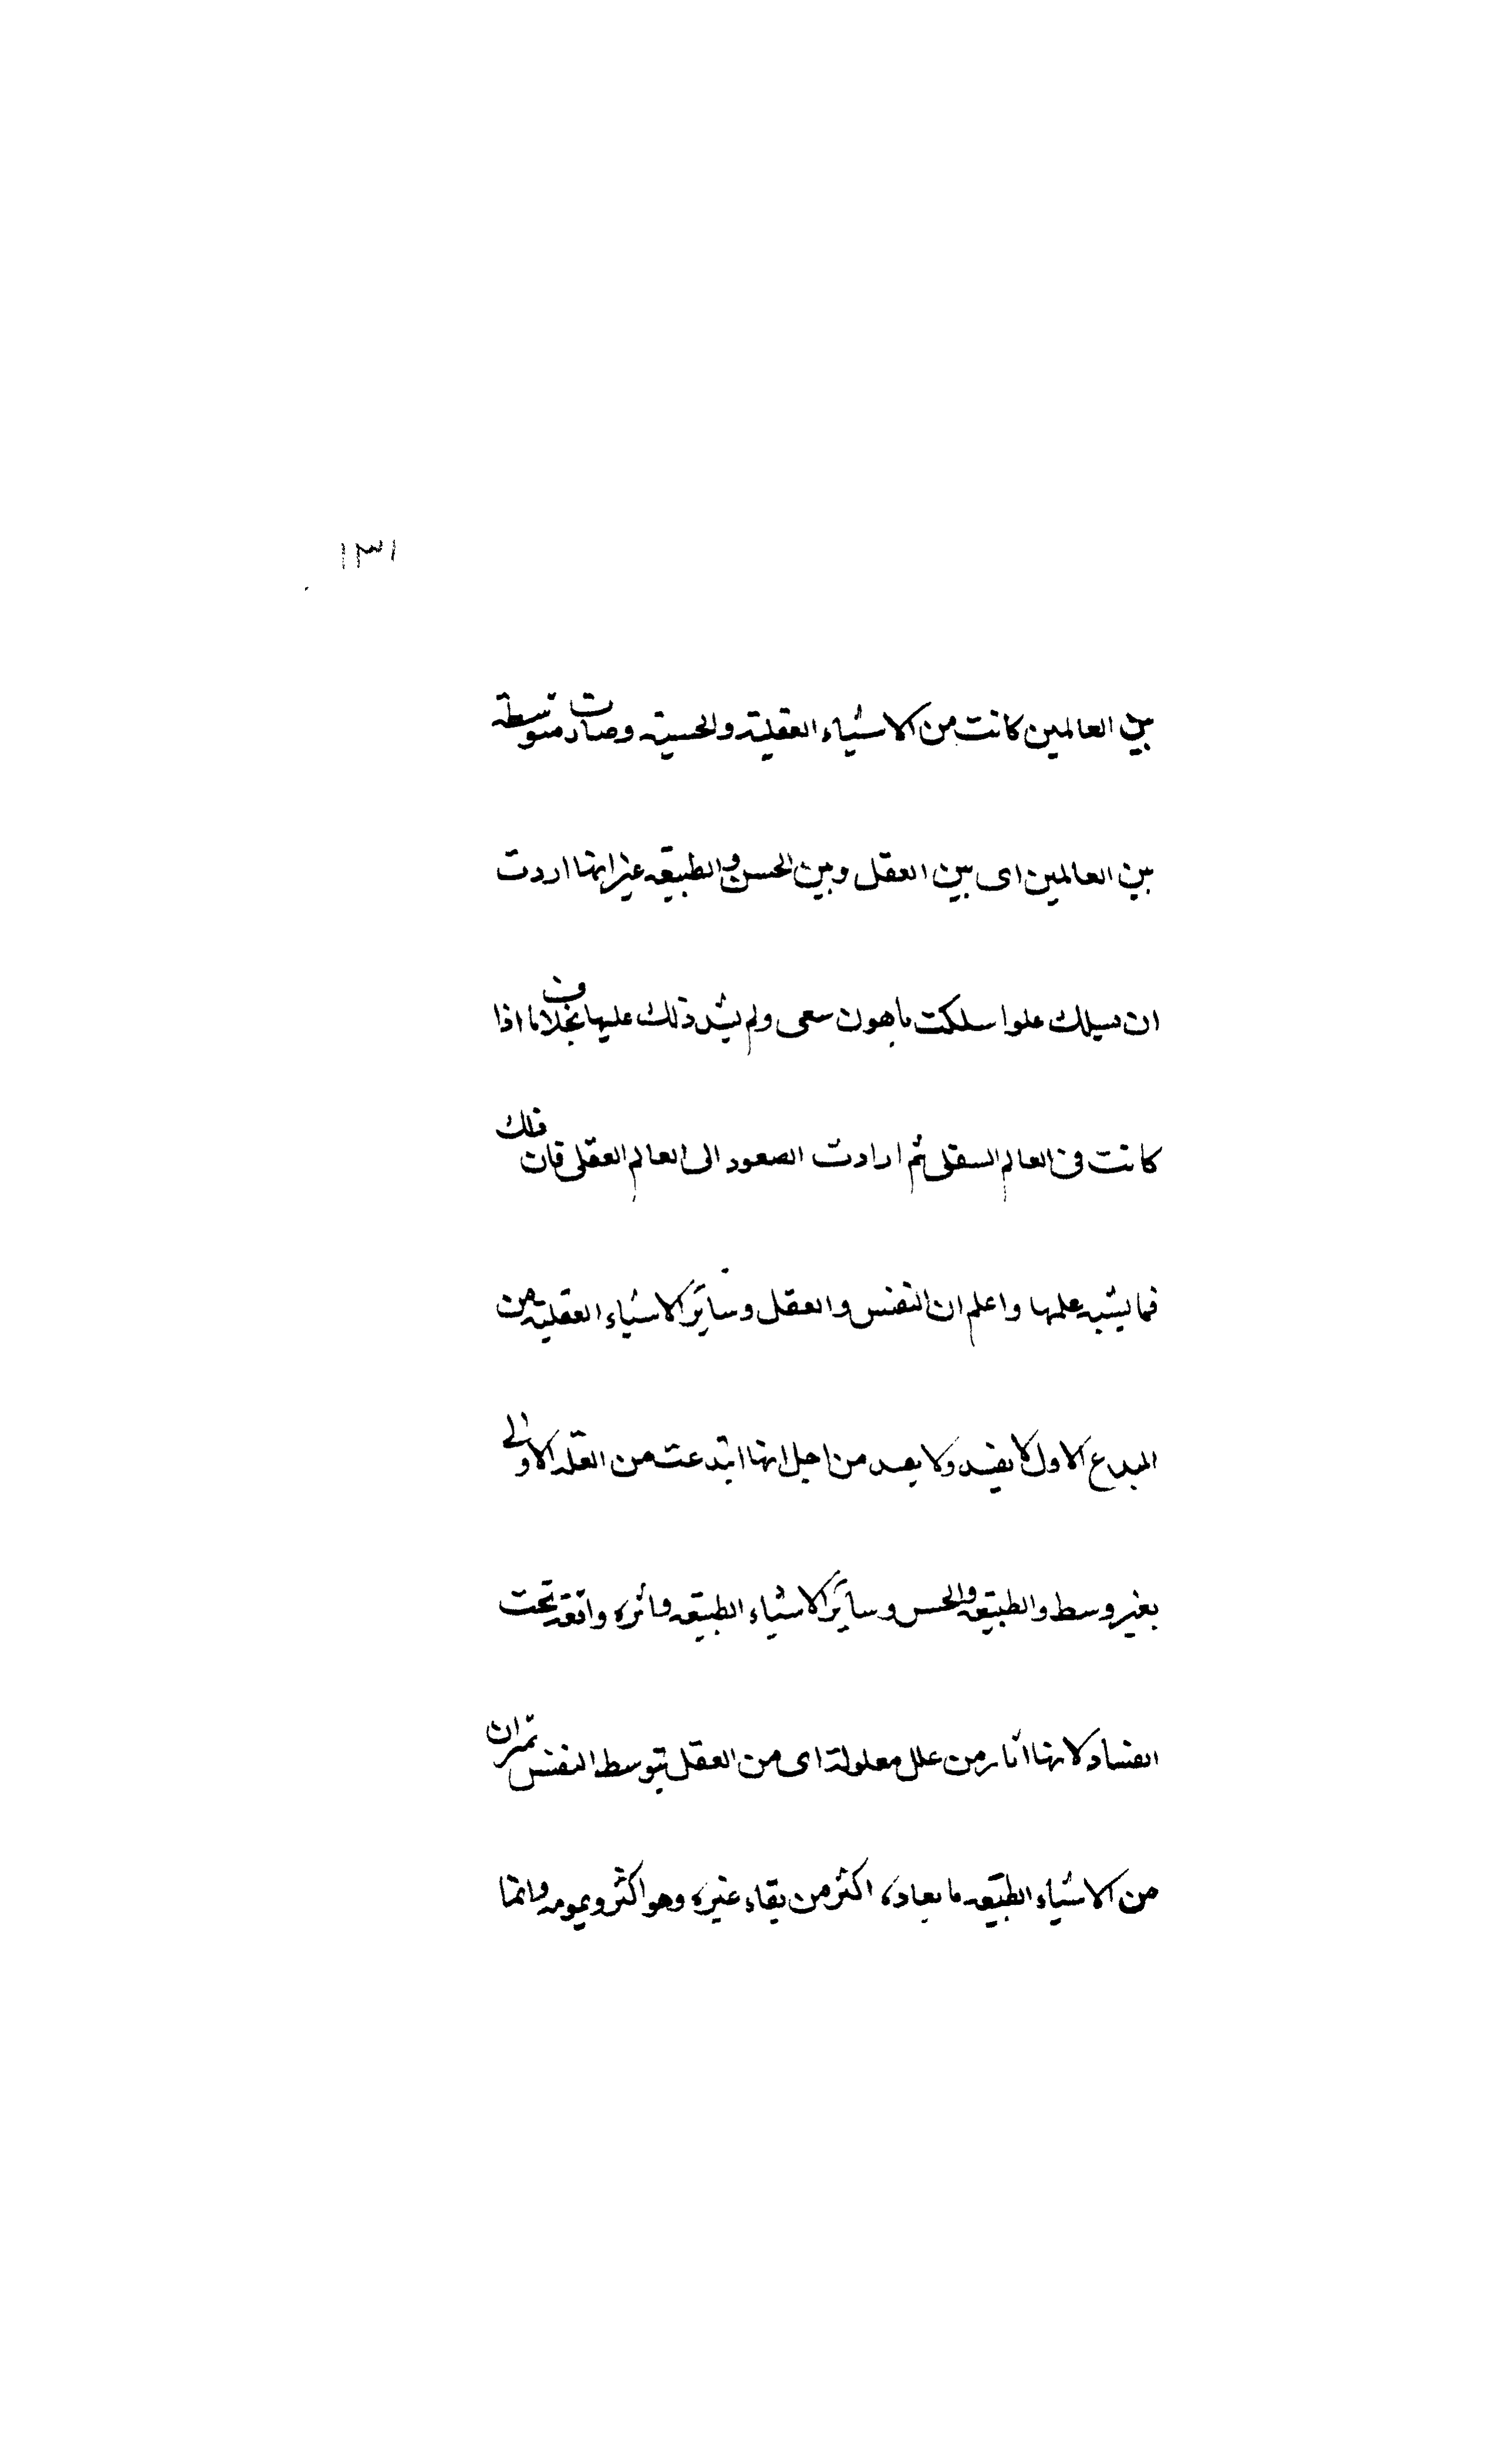 ١٣١
بين العالمين كانت من الاشياء العقلية والحسية وصارت متوسطة
بين العالمين اى بين العقل وبين الحسن والطبيعه غير انها اردت
ان تسلك علوا سلكت باهون سعى ولم يشد ذلك عليها بخلاف ما اذا
كانت فى العالم السفلى ثم ارادت الصعود الى العالم العقلى فان ذلك
فما يشبه علمها واعلم ان النفس والعقل وسائر الاشياء العقلية من
المبدع الاول لا يفسد ولا يعد من اجل انها ابتدعت من العله الاولى
بغير وسط والطبيعه والحس وسائر الاشياء الطبيعه واثره واقعه تحت
الفساد لانها اثار من علل معلولة اى من العقل بتوسط النفس ثم ان
من الاشياء الطبيعه ما بعاده اكثر من بقاء غيره وهو اكثر ويمومه وانما